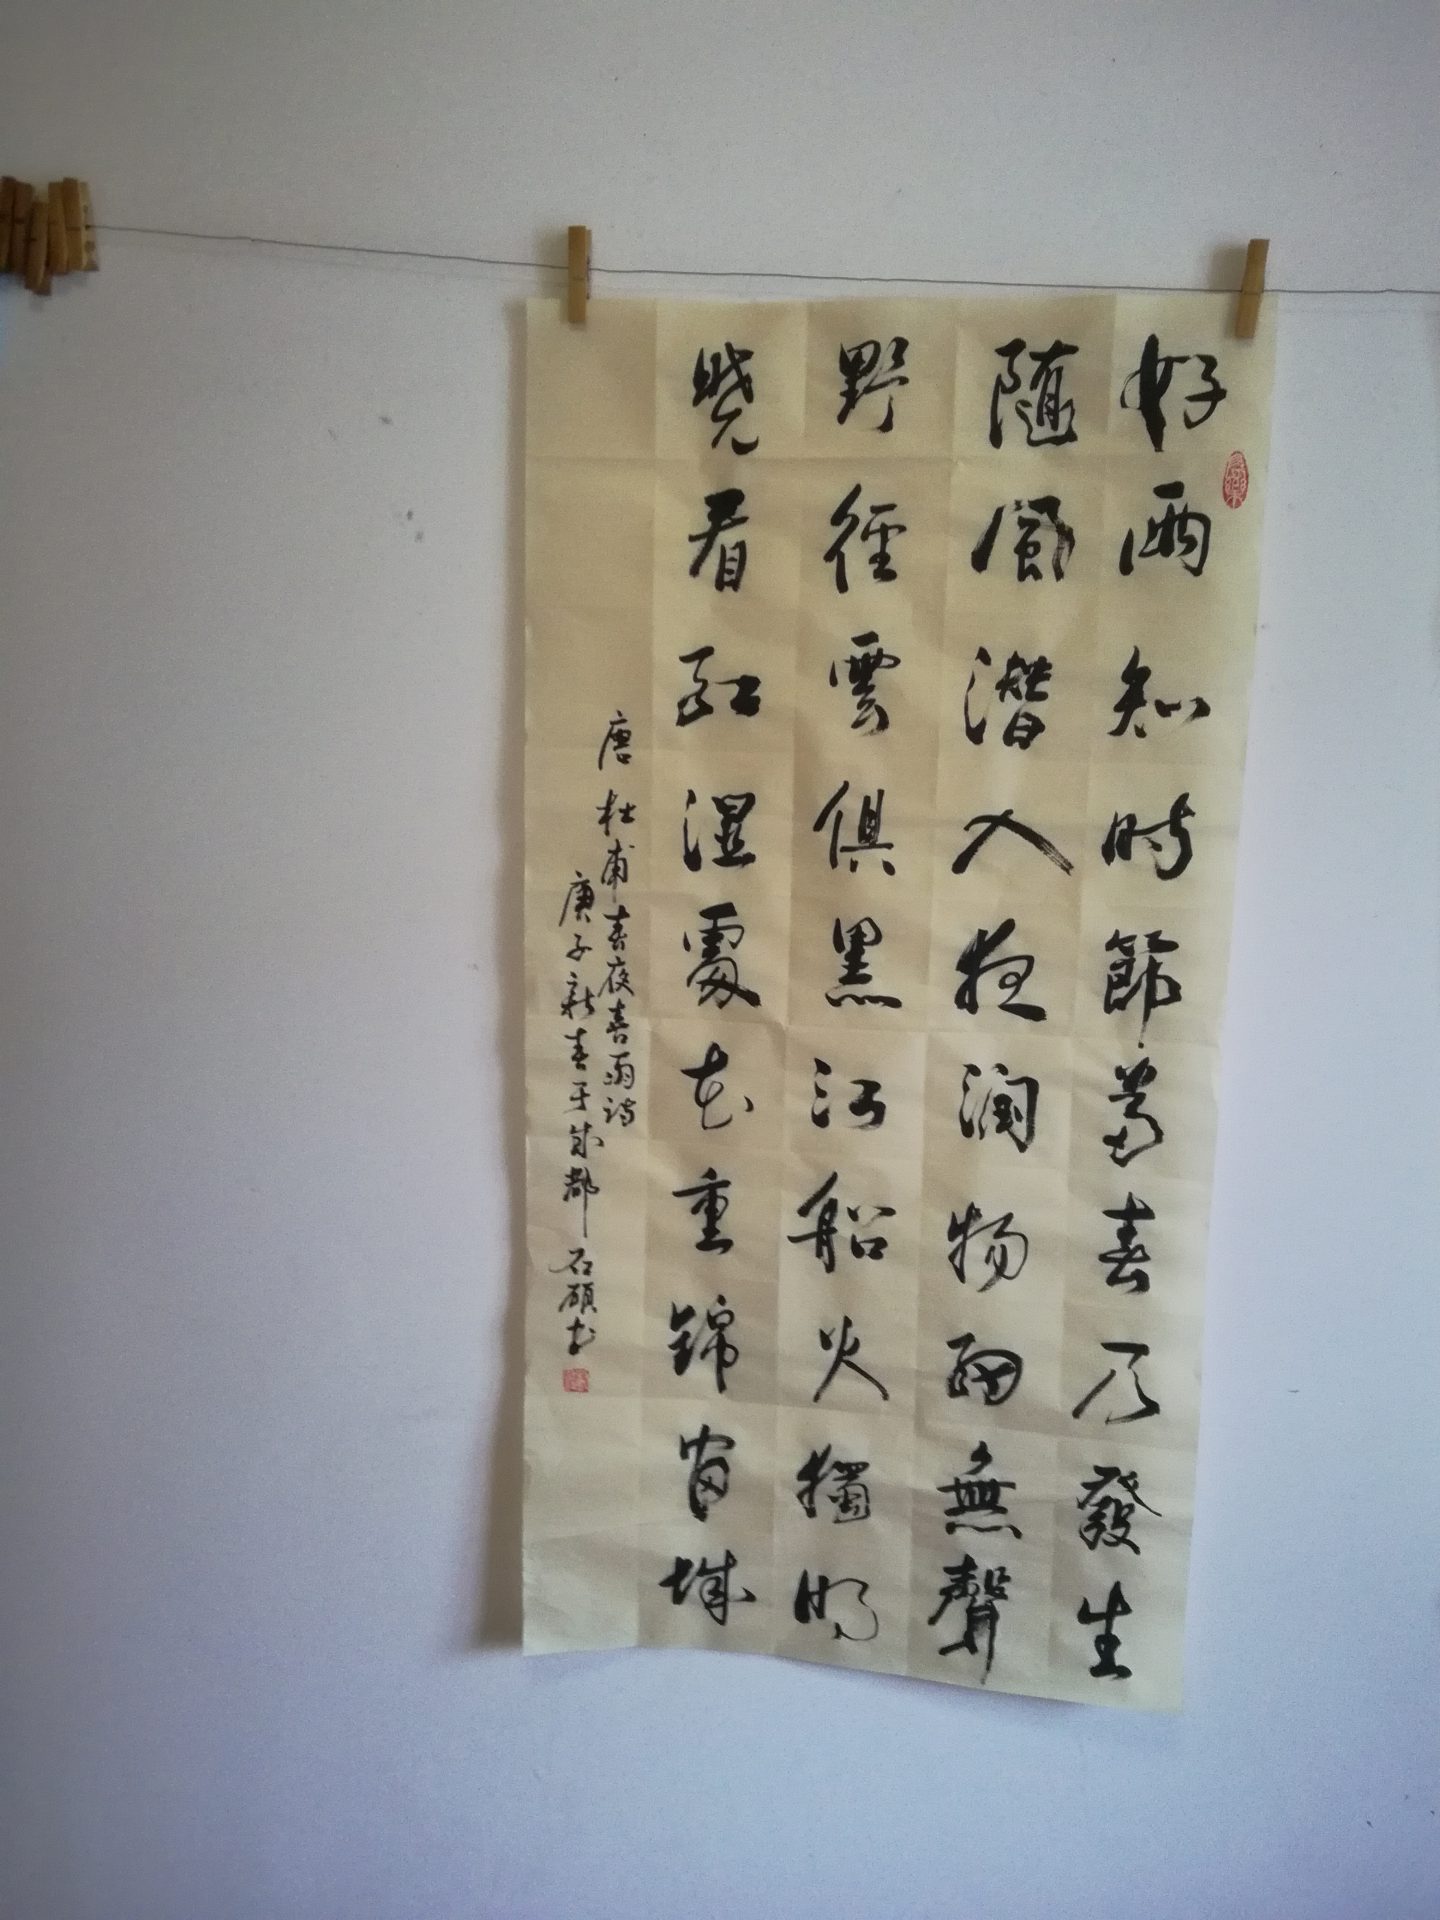 好雨知時節當春乃發生
隨風潛入夜潤物細無聲
野徑雲俱黑江船火獨明
曉看紅濕處花重錦官城
唐杜甫春夜喜雨詩
庚子新春于成都石碩書